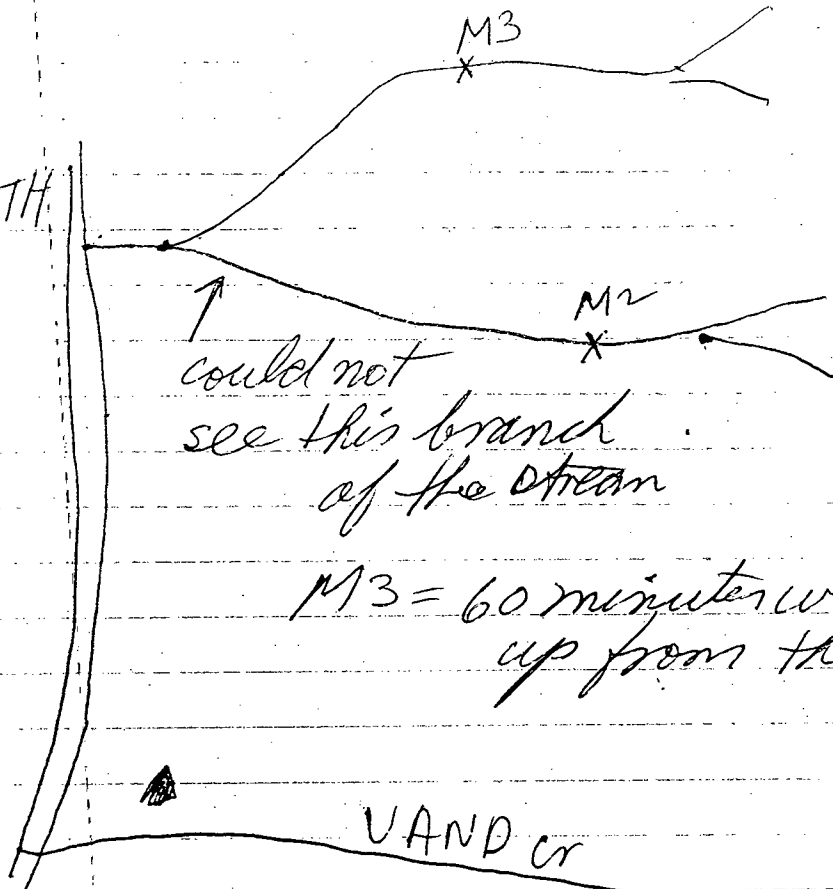 M3
TH
M2
could not
see this branch
of the stream
M3 = 60 minutes
up from
VAND cr